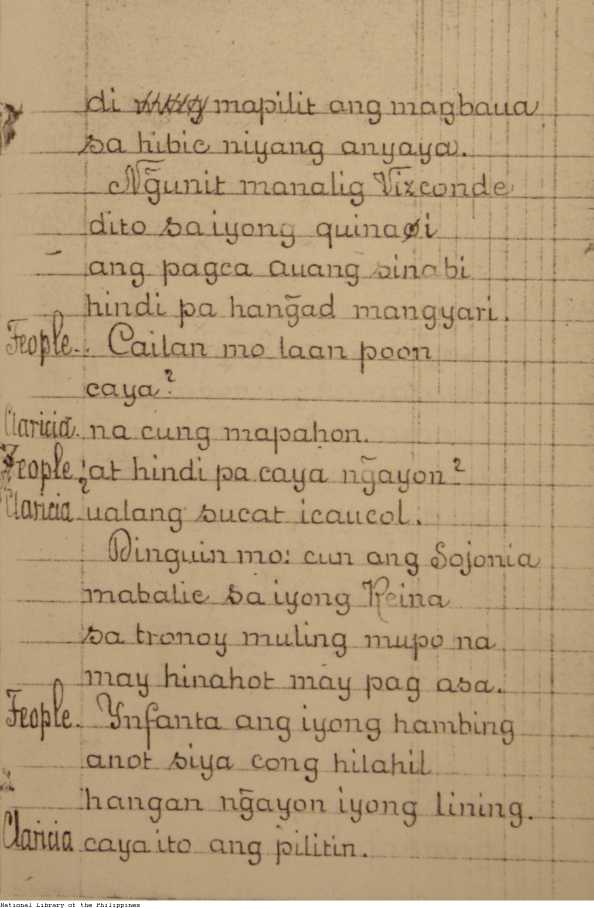 di mapilit ang magbaua
sa hibic niyang anyaya.
Ng̃unit manalig Vizconde
dito sa iyong quinaoi
ang pagca auang sinabi
hindi pa hang̃ad mangyari.
Feople.. Cailan mo laan poon
caya?
Claricia. na cung mapahon.
Feople. ¿at hindi pa caya ng̃ayon?
Claricia ualang sucat icaucol.
Dinguin mo: cun ang Sojonia
mabalic sa iyong Reina
sa tronoy muling mupo na
may hinahot may pag asa.
Feople. Ynfanta ang iyong hambing
anot siya cong hilahil
hangan ng̃ayon iyong lining.
Claricia caya ito ang pilitin.
National Library of the Philippines